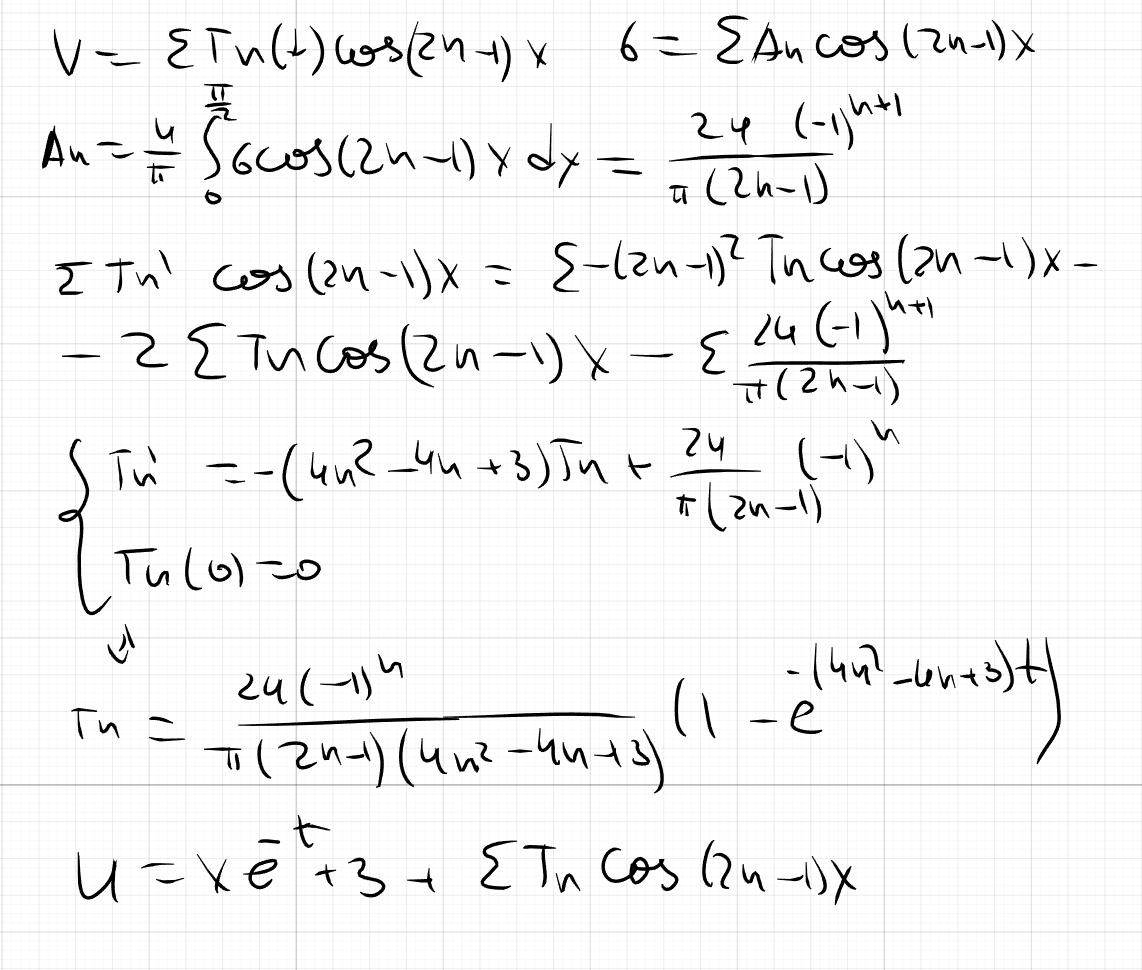 V = ΣTn(t)cos(2n-1)x   6 = ΣAn cos(2n-1)x
An = 4/π ∫₀^(π/2) 6cos(2n-1)x dx = 24 (-1)^(n+1) / π(2n-1)
ΣTn' cos(2n-1)x = Σ-(2n-1)² Tn cos(2n-1)x -
- 2ΣTn cos(2n-1)x - Σ 24(-1)^(n+1) / π(2n-1)
{ Tn' = -(4n²-4n+3)Tn + 24/π(2n-1) (-1)^n
Tn(0)=0
⇓
Tn = 24(-1)^n / π(2n-1)(4n²-4n+3) (1 - e^(-(4n²-4n+3)t))
U = xe^(-t) + 3 + ΣTn cos(2n-1)x